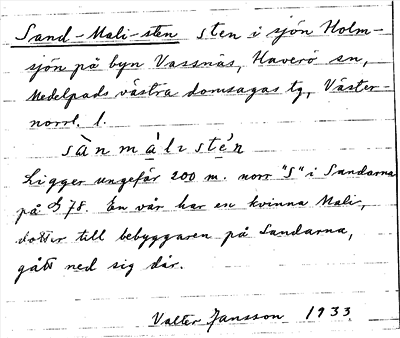 Sand-Mali-sten sten i sjön Holm-
sjön på byn Vassnäs, Haverö sn,
Medelpads västra domsagas tg, Väster-
norrl. l.
sànmàlɩstén
Ligger ungefär 200 m. norr "S" i Sandarna
på G 78. En vår har en kvinna Mali,
dotter till bebyggaren på Sandarna,
gått ned sig där.
Valter Jansson 1933